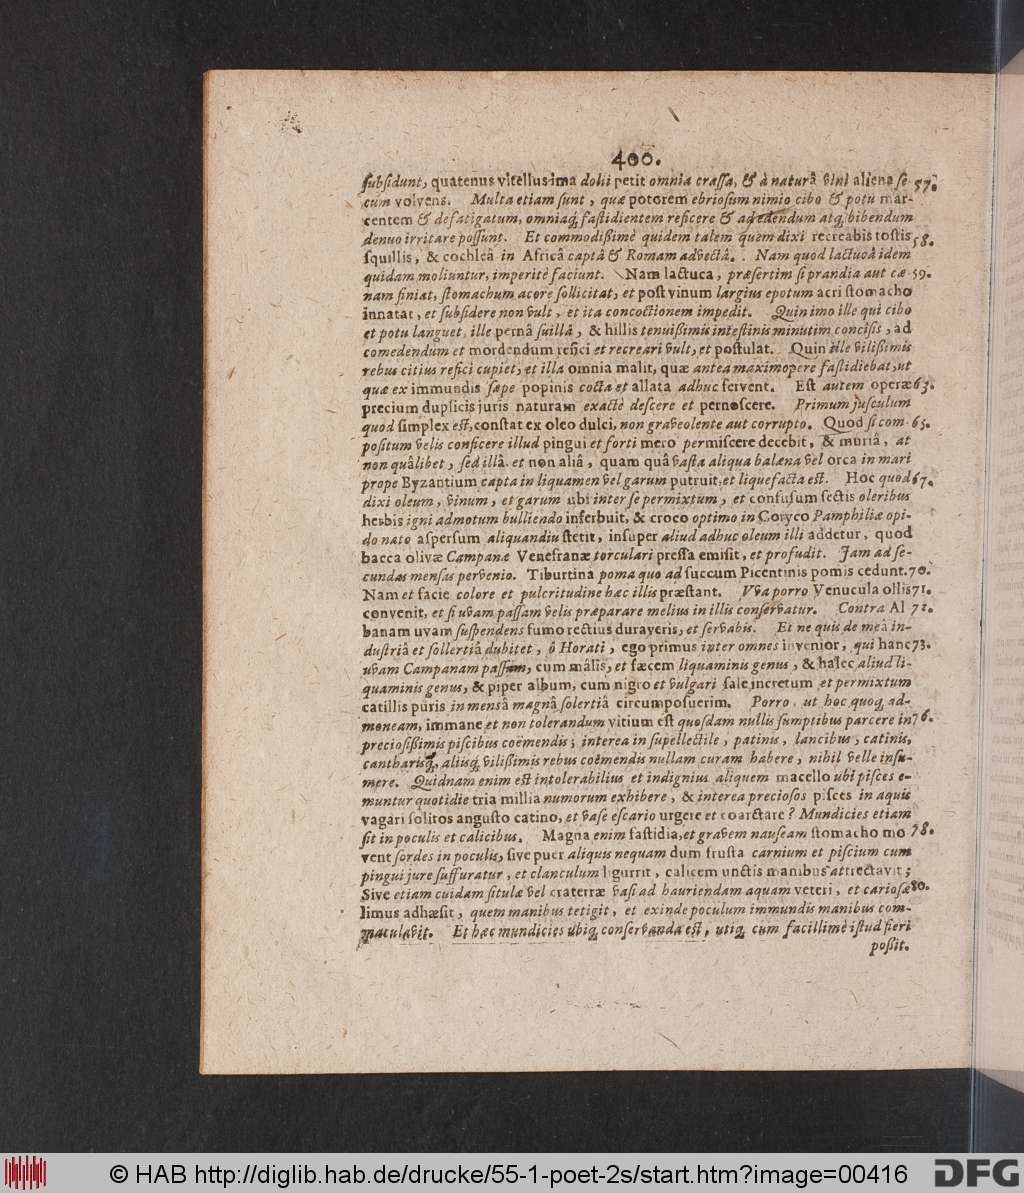 400.
subsidunt, quatenus vitellus ima dolii petit omnia crassa, & à naturâ vini aliena se- 57.
cum volvens. Multa etiam sunt, quæ potorem ebriosum nimio cibo & potu mar-
centem & defatigatum, omniaq́; fastidientem reficere & ad edendum atq; bibendum
denuo irritare possunt. Et commodißimè quidem talem quem dixi recreabis tostis 58.
squillis, & cochleâ in Africâ captâ & Romam advectâ. Nam quod lactucâ idem
quidam moliuntur, imperitè faciunt. Nam lactuca, præsertim si prandia aut cœ- 59.
nam finiat, stomachum acore sollicitat, et post vinum largius epotum acri stomacho
innatat, et subsidere non vult, et ita concoctionem impedit. Quin imo ille qui cibo
et potu languet, ille pernâ suillâ, & hillis tenuißimis intestinis minutim concisis, ad
comedendum et mordendum refici et recreari vult, et postulat. Quin ille vilißimis
rebus citius refici cupiet, et illa omnia malit, quæ antea maximopere fastidiebat, ut
quæ ex immundis sæpe popinis cocta et allata adhuc fervent. Est autem operæ 63.
precium duplicis juris naturam exactè descere et pernoscere. Primum jusculum
quod simplex est, constat ex oleo dulci, non graveolente aut corrupto. Quod si com- 65.
positum velis conficere illud pingui et forti mero permiscere decebit, & muriâ, at
non quâlibet, sed illâ et non aliâ, quam quâ vasta aliqua balæna vel orca in mari
prope Byzantium capta in liquamen vel garum putruit, et liquefacta est. Hoc quod 67.
dixi oleum, vinum, et garum ubi inter se permixtum, et confusum sectis oleribus
herbis igni admotum bulliendo inferbuit, & croco optimo in Coryco Pamphiliæ opi-
do nato aspersum aliquandiu stetit, insuper aliud adhuc oleum illi addetur, quod
bacca olivæ Campanæ Venefranæ torculari pressa emisit, et profudit. Jam ad se-
cundas mensas pervenio. Tiburtina poma quo ad succum Picentinis pomis cedunt. 70.
Nam et facie colore et pulcritudine hæc illis præstant. Vva porro Venucula ollis 71.
convenit, et si uvam passam velis præparare melius in illis conservatur. Contra Al 72.
banam uvam suspendens fumo rectius duraveris, et servabis. Et ne quis de meâ in-
dustriâ et sollertiâ dubitet, ô Horati, ego primus inter omnes invenior, qui hanc 73.
uvam Campanam passam, cum mâlis, et fæcem liquaminis genus, & halec aliud li-
quaminis genus, & piper album, cum nigro et vulgari sale incretum et permixtum
catillis puris in mensâ magnâ solertiâ circumposuerim. Porro ut hoc quoq; ad-
moneam, immane et non tolerandum vitium est quosdam nullis sumptibus parcere in 76.
preciosißimis piscibus coëmendis; interea in supellectile, patinis, lancibus, catinis,
cantharisq́;, aliisq́; vilißimis rebus coëmendis nullam curam habere, nihil velle insu-
mere. Quidnam enim est intolerabilius et indignius aliquem macello ubi pisces e-
muntur quotidie tria millia numorum exhibere, & interea preciosos pisces in aquis
vagari solitos angusto catino, et vase escario urgere et coarctare? Mundicies etiam
sit in poculis et calicibus. Magna enim fastidia, et gravem nauseam stomacho mo 78.
vent sordes in poculis, sive puer aliquis nequam dum frusta carnium et piscium cum
pingui jure suffuratur, et clanculum ligurrit, calicem unctis manibus attrectavit;
Sive etiam cuidam situlæ vel craterræ vasi ad hauriendam aquam veteri, et cariosæ 80.
limus adhæsit, quem manibus tetigit, et exinde poculum immundis manibus com-
maculavit. Et hæc mundicies ubiq; conservanda est, utiq; cum facillimè istud fieri
poßit.
© HAB http://diglib.hab.de/drucke/55-1-poet-2s/start.htm?image=00416
DFG